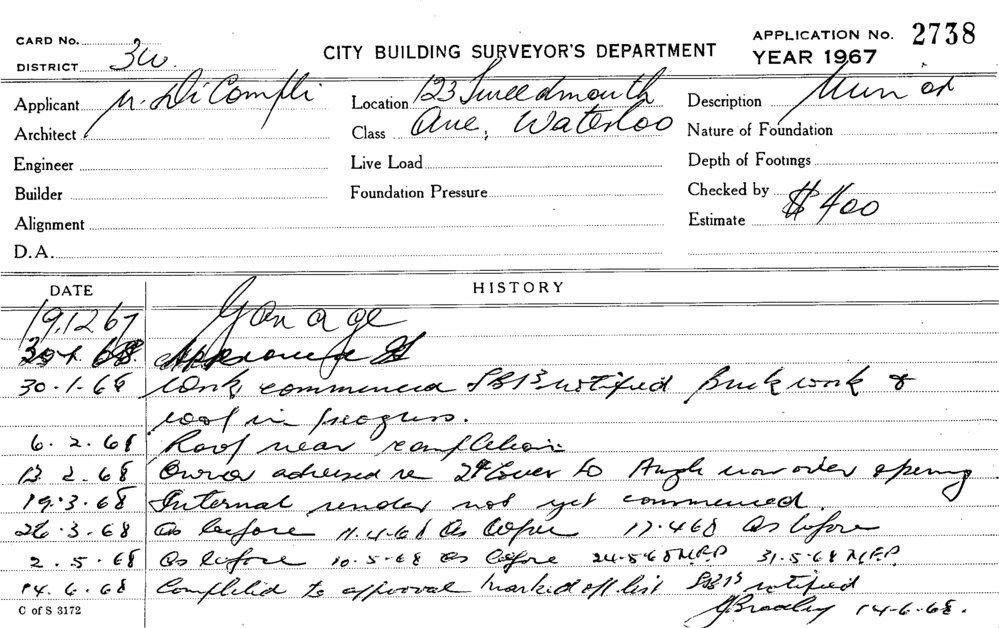 CARD No.
APPLICATION No. 2738
DISTRICT 3W.
CITY BUILDING SURVEYOR'S DEPARTMENT
YEAR 1967
Applicant
Location 123 Tweedmouth
Description
Architect
Class Ave, Waterloo
Nature of Foundation
Engineer
Live Load
Depth of Footings
Builder
Foundation Pressure
Checked by
Alignment
Estimate $400
D.A.
DATE HISTORY
19.12 67 Garage
30.1.68 work commenced notified Brickwork &
roof in progress.
6.2.68 Roof near completion
13 2.68 Owner advised re to Angle over opening
19.3.68 Internal render not yet commenced.
26.3.68 As before 11.4.68 As before 17.4.68 As before
2.5.68 As before 10.5.68 as before 24.5.68 31.5.68
14.6.68 Completed to approval marked off list notified
C of S 3172
J Bradley 14-6-68.